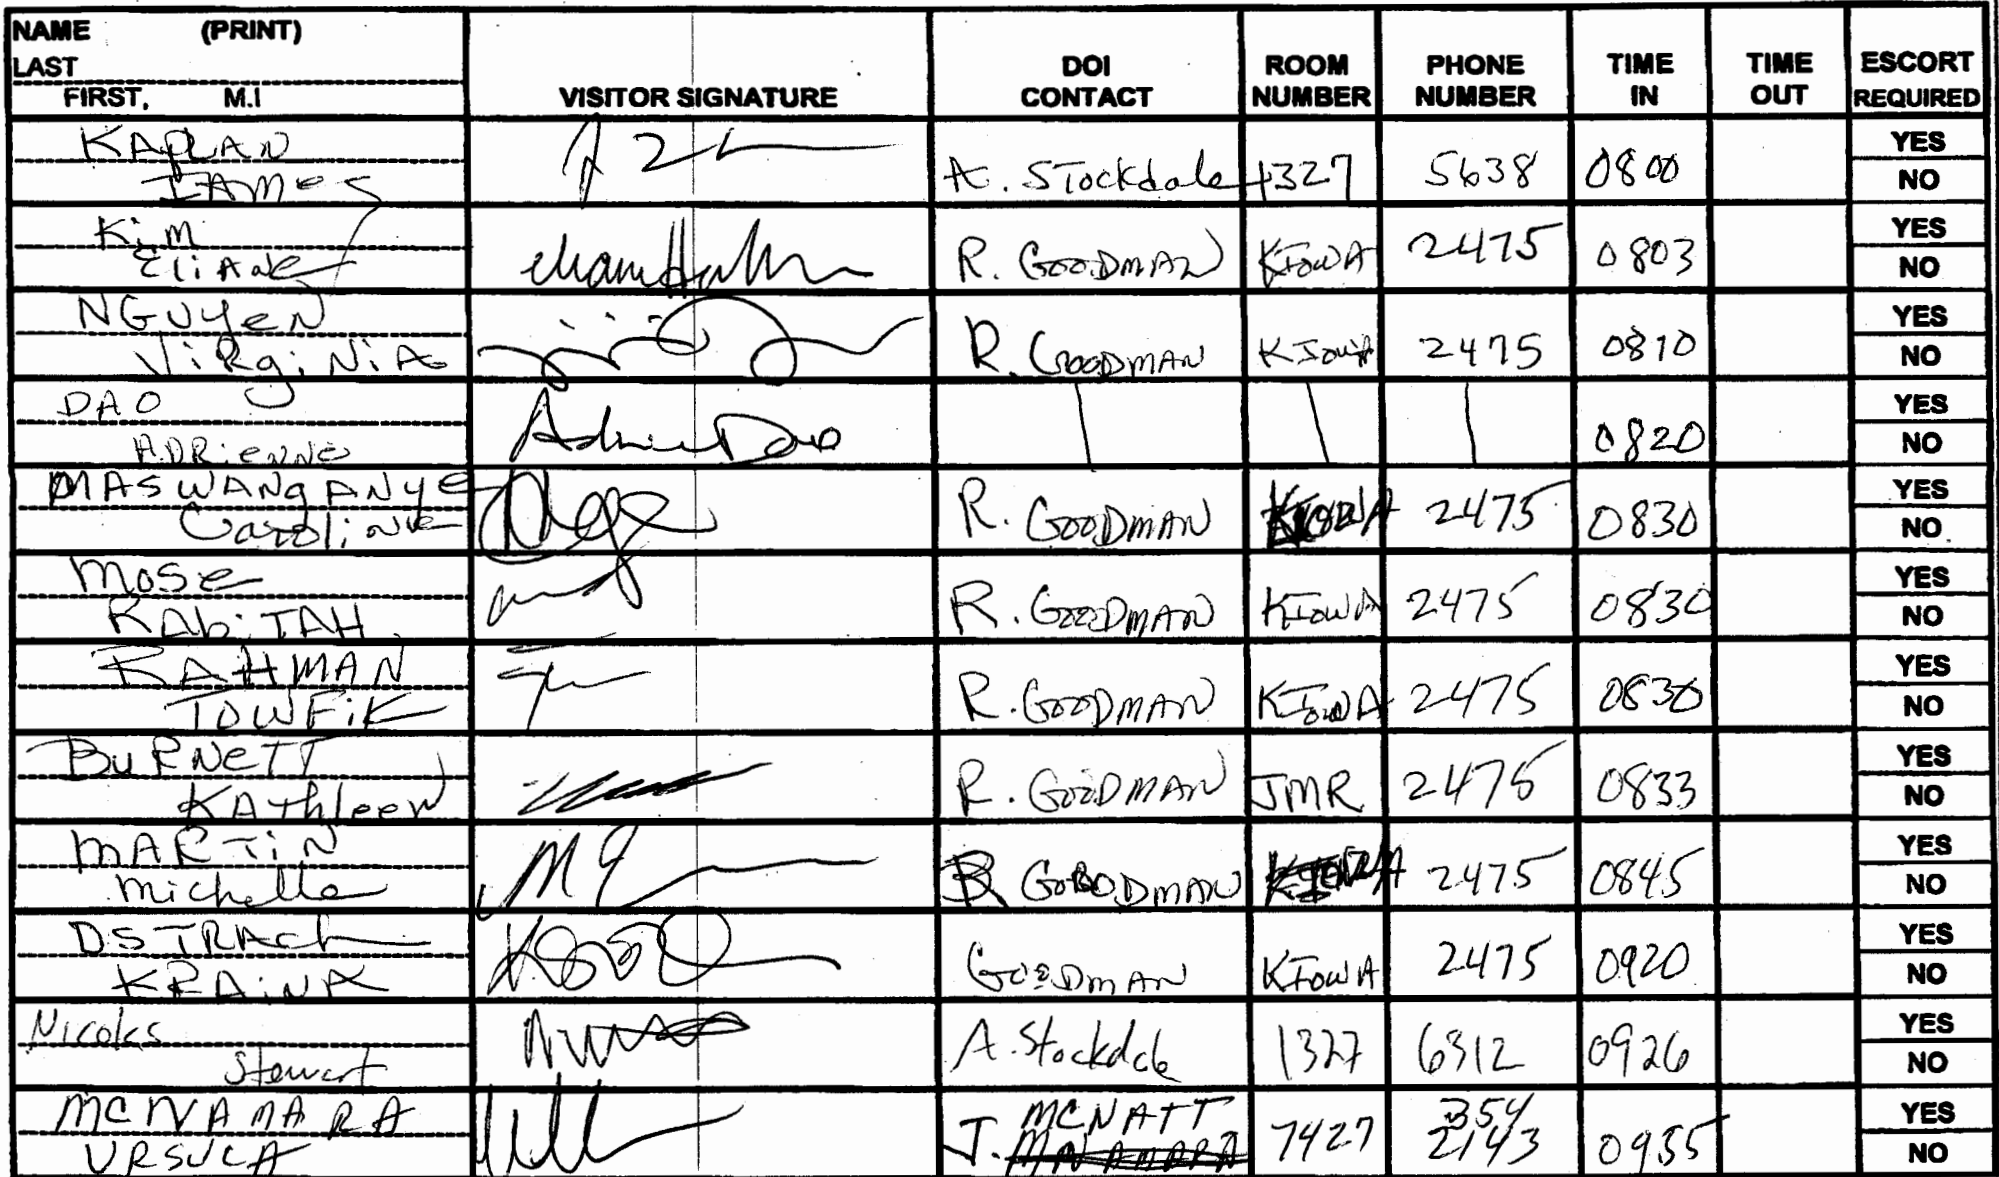 NAME (PRINT)
LAST
FIRST, M.I
VISITOR SIGNATURE
DOI CONTACT
ROOM NUMBER
PHONE NUMBER
TIME IN
TIME OUT
ESCORT REQUIRED
KAPLAN
JAMES
A. Stockdale 1327 5638 0800 YES NO
Kim
Eliane
R. GOODMAN KIOWA 2475 0803 YES NO
NGUYEN
VirgiNiA
R. GOODMAN KIOWA 2475 0810 YES NO
DAO
ADRieNNe
Adrienne Dao
0820 YES NO
MASWANGANYE
Caroline
R. GOODMAN KIOWA 2475 0830 YES NO
Mose
RAbiTAH
R. GOODMAN KIOWA 2475 0830 YES NO
RAHMAN
TOWFiK
R. GOODMAN KIOWA 2475 0830 YES NO
BURNETT
KAthleen
R. GOODMAN JMR 2475 0833 YES NO
MARTIN
Michelle
GOODMAN KIOWA 2475 0845 YES NO
KRAINA
GOODMAN KIOWA 2475 0920 YES NO
Nicolas
Stewart
A. Stockdale 1327 6312 0926 YES NO
MCNAMARA
URSULA
J. MCNATT 7427 354 2143 0935 YES NO